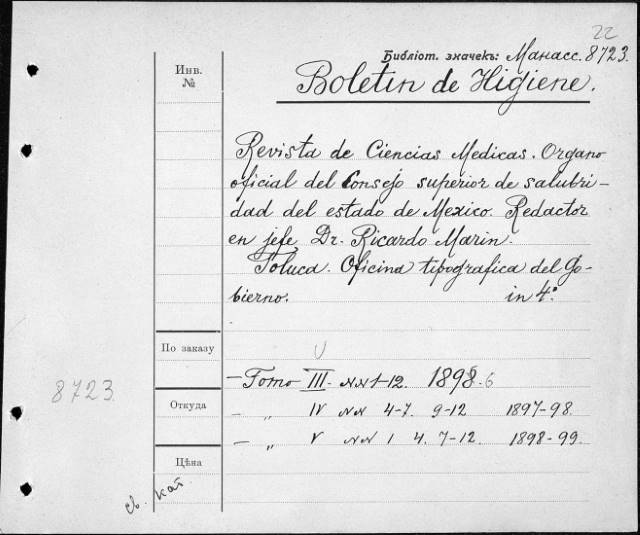 22
Библіот. значекъ: Манасс. 8723.
Инв.
№
Boletin de Higiene.
Revista de Ciencias Medicas. Organo
oficial del Consejo superior de salubri-
dad del estado de Mexico. Redactor
en jefe, Dr. Ricardo Marin.
Toluca. Oficina tipografica del Go-
bierno. in 4º.
По заказу
— Tomo III. NN 1-12. 1895-6
8723.
Откуда
— „ IV NN 4-7. 9-12 1897-98.
— „ V NN 1 4. 7-12. 1898-99.
Цѣна
св. кат.